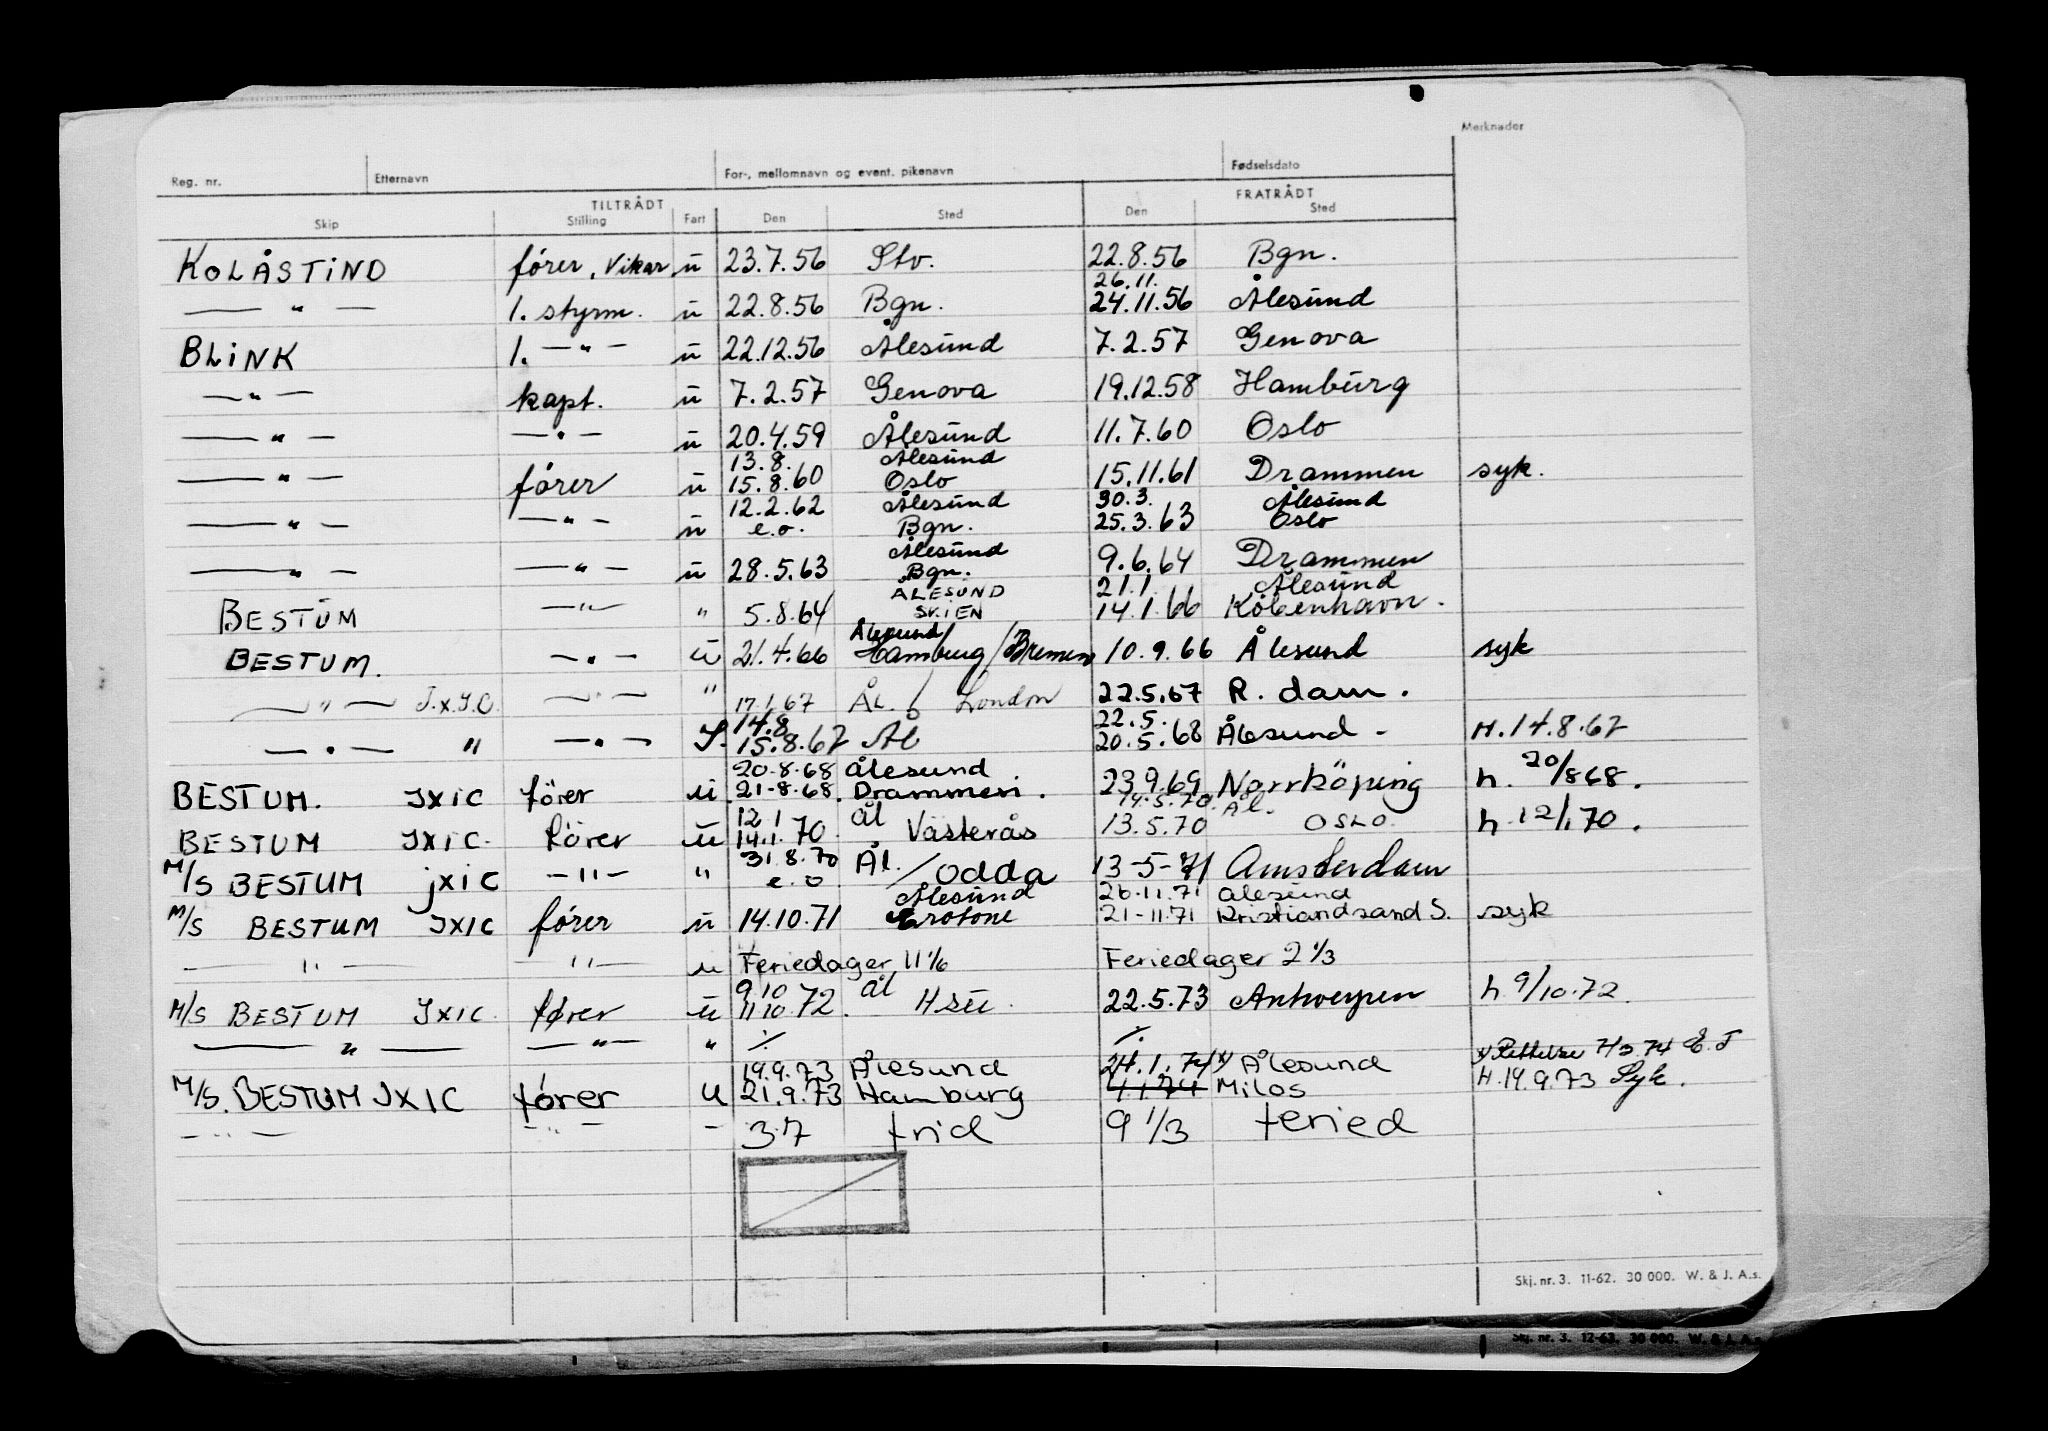 Merknader
Reg. nr. Etternavn For-, mellomnavn og event. pikenavn Fødselsdato
TILTRÅDT FRATRÅDT
Skip Stilling Fart Den Sted Den Sted
KOLÅSTIND fører, vikar u 23.7.56 Stv. 22.8.56 Bgn.
26.11.
— " — 1. styrm. u 22.8.56 Bgn. 24.11.56 Ålesund
BLINK 1. — " — u 22.12.56 Ålesund 7.2.57 Genova
— " — kapt. u 7.2.57 Genova 19.12.58 Hamburg
— " — — " — u 20.4.59 Ålesund 11.7.60 Oslo
13.8. Ålesund
— " — fører u 15.8.60 Oslo 15.11.61 Drammen syk.
12.2.62 Ålesund 30.3. Ålesund
— " — — " — u e.o. Bgn. 25.3.63 Oslo
Ålesund
— " — — " — u 28.5.63 Bgn. 9.6.64 Drammen
ÅLESUND 21.1. Ålesund
BESTUM — " — " 5.8.64 SKIEN 14.1.66 København.
Ålesund
BESTUM. — " — u 21.4.66 Hamburg/Bremen 10.9.66 Ålesund syk
— " — J.X.I.C. — " — " 17.1.67 ÅL. / London 22.5.67 R.dam.
14.8 22.5.
— " — " — " — S. 15.8.67 Ål 20.5.68 Ålesund - H.14.8.67
20.8.68 Ålesund
BESTUM. JXIC fører u 21-8-68. Drammen. 23.9.69 Norrköping h. 20/8 68.
12.1 ål 14.5.70. Ål.
BESTUM JXIC. fører u 14.1.70. Västerås 13.5.70 OSLO h 12/1 70.
31.8.70 Ål.
M/S BESTUM JXIC — " — " e.o / Odda 13-5-71 Amsterdam
Ålesund 26.11.71 Ålesund
M/S BESTUM JXIC fører u 14.10.71 Crotone 21-11.71 Kristiandsand S. syk
— " — — " — u Feriedager 11 1/6 Feriedager 2 1/3
9.10 ål
M/S BESTUM JXIC. fører u 11.10.72. Hsu. 22.5.73 Antwerpen h 9/10.72.
— " — — " — " ./. ./.
19.9.73 Ålesund 24.1.74 x) Ålesund x) Rettelse 7/3.74 E.J
M/S. BESTUM JXIC fører U 21.9.73 Hamburg 4.1.74 Milos H.19.9.73 Syk.
— " — — " — - 37 frid 9 1/3 feried
Skj. nr. 3. 11-62. 30 000. W. & J. A.s.
Skj. nr. 3. 12-63. 30 000. W. & J. A.s.